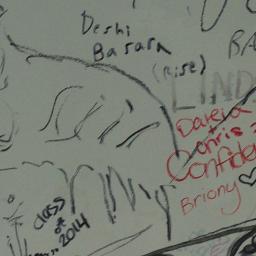 Deshi
Basara
(rise)
BA
LIND
Dateia
Chris
Confide
Briony
class
of
2014